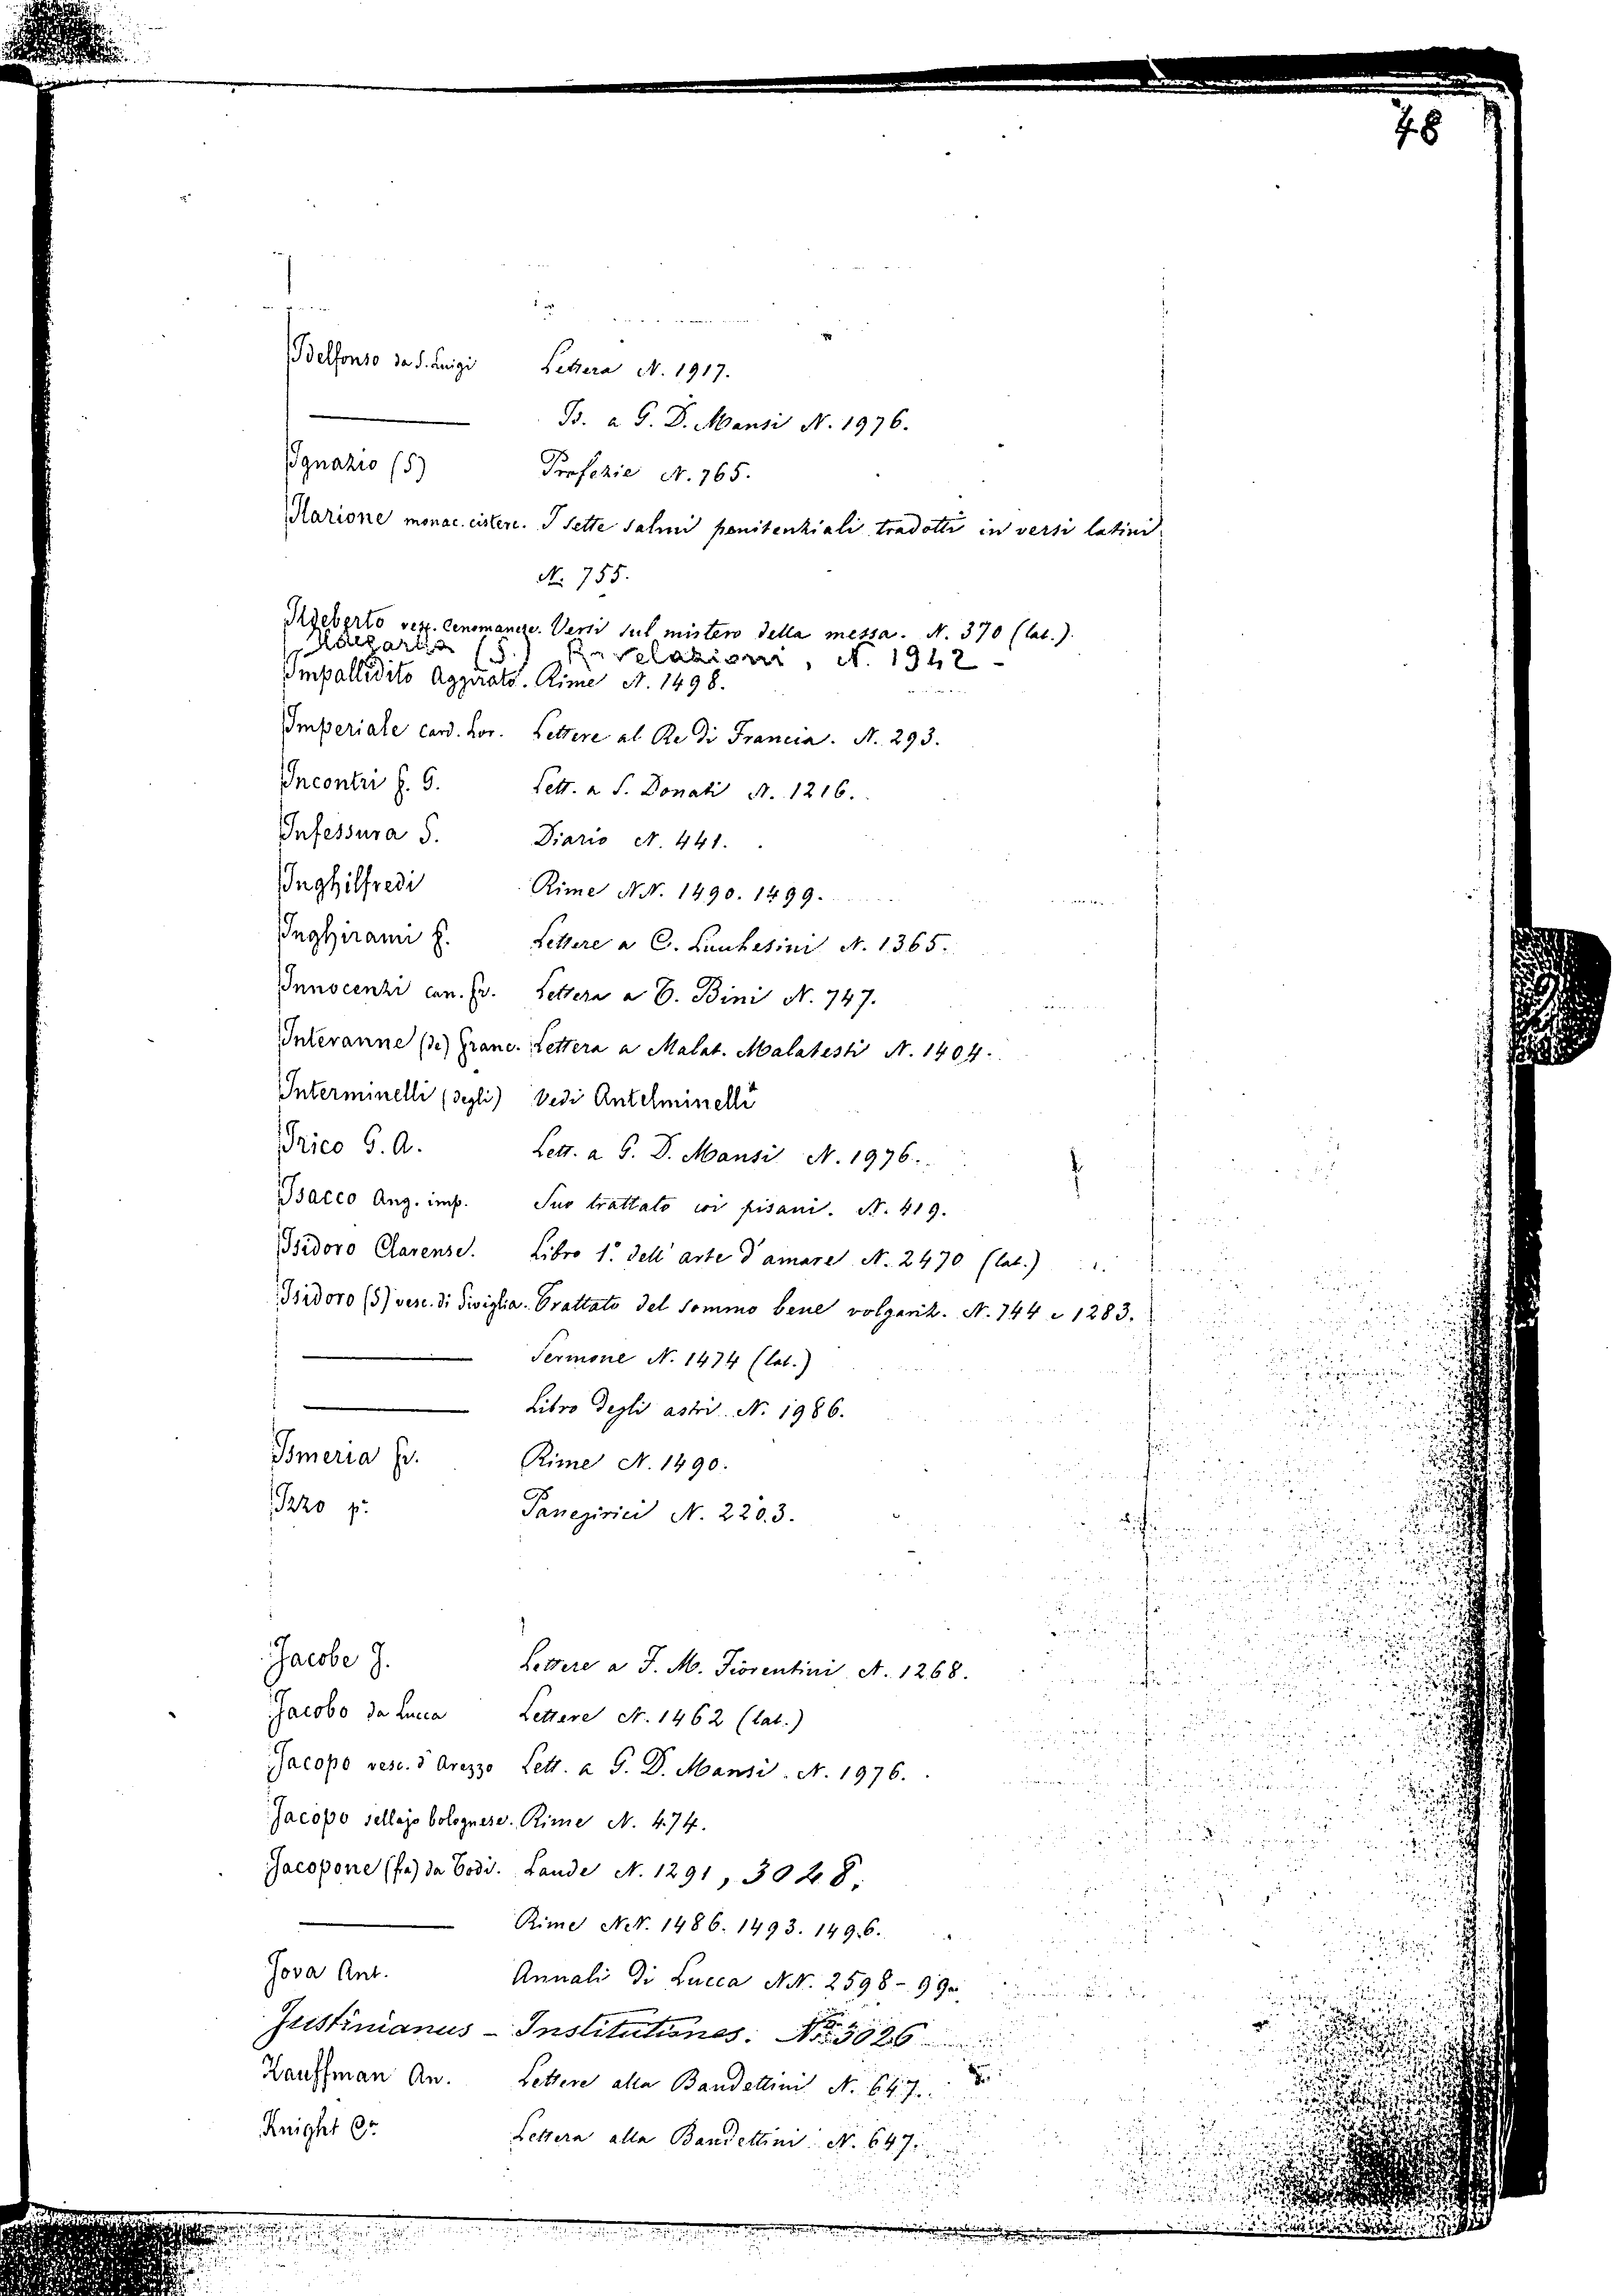 48
Idelfonso da S. Luigi Lettera N. 1917.
——— Is. a G. D. Mansi N. 1976.
Ignazio (S) Profezie N. 765.
Ilarione monac. cisterc. I sette salmi penitenziali tradotti in versi latini
N. 755.
Ildeberto vesc. Cenomanese. Versi sul mistero della messa. N. 370 (lat.).
Ildegarda (S.) Rivelazioni, N. 1942 -
Impallidito Aggirato. Rime N. 1498.
Imperiale card. Lor. Lettere al Re di Francia. N. 293.
Incontri F. G. Lett. a S. Donati N. 1216.
Infessura S. Diario N. 441.
Inghilfredi Rime NN. 1490. 1499.
Inghirami F. Lettere a C. Lucchesini N. 1365.
Innocenzi can. Fr. Lettera a T. Bini N. 747.
Interanne (de) Franc. Lettera a Malat. Malatesti N. 1404.
Interminelli (degli) Vedi Antelminelli
Irico G. A. Lett. a G. D. Mansi N. 1976.
Isacco Ang. imp. Suo trattato coi pisani. N. 419.
Isidoro Clarense. Libro 1.º dell'arte d'amare N. 2470 (lat.)
Isidoro (S) vesc. di Siviglia. Trattato del sommo bene volgariz. N. 744 e 1283.
——— Sermone N. 1474 (lat.)
——— Libro degli astri N. 1986.
Ismeria Fr. Rime N. 1490.
Izzo p. Panegirici N. 2203.
Jacobe J. Lettere a F. M. Fiorentini N. 1268.
Jacobo da Lucca Lettere N. 1462 (lat.)
Jacopo vesc. d'Arezzo Lett. a G. D. Mansi. N. 1976.
Jacopo sellajo bolognese. Rime N. 474.
Jacopone (fra) da Todi. Laude N. 1291, 3028,
——— Rime NN. 1486. 1493. 1496.
Jova Ant. Annali di Lucca NN. 2598-99
Justinianus - Institutiones. N. 3026
Kauffman An. Lettere alla Bandettini N. 647.
Knight C. Lettera alla Bandettini N. 647.